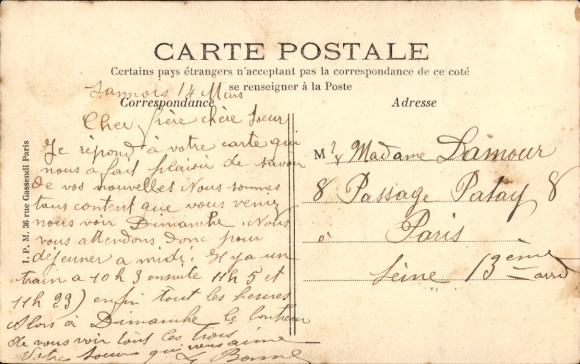 CARTE POSTALE
Certains pays étrangers n'acceptant pas la correspondance de ce coté
se renseigner à la Poste
Correspondance
14 Mars
Cher frère chère sœur
Je répond à votre carte qui
nous a fait plaisir de savoir
de vos nouvelles Nous sommes
tous content que vous venez
nous voir Dimanche. Nous
vous attendons donc pour
déjeuner a midi. Il y a un
train a 10h 3 ensuite 11h 5 et
11h 29) enfin tout les heures
Alors à Dimanche le bonheur
de vous voir tout les trois
Votre sœur qui vous aime
Bonne
Adresse
Mr & Madame Lamour
8 Passage Patay 8
à Paris
Seine 13ème arrd
I. P. M. 36 rue Gassendi Paris